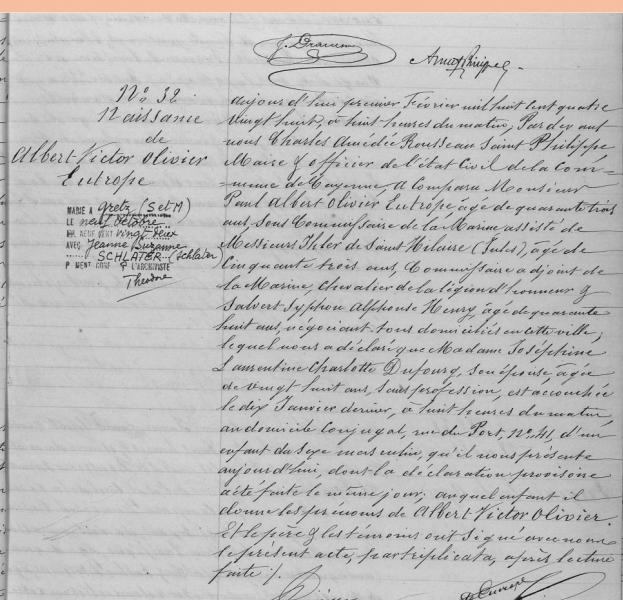 J. Drancour
Nº 32
Naissance
de
Albert Victor Olivier
Eutrope
MARIE A Gretz (S et M)
LE neuf Octobre
MIL NEUF CENT vingt deux
AVEC Jeanne Suzanne
SCHLATER (Schlater)
P MENT CONF L'ARCHIVISTE
Theodore
aujourd'hui premier Février mil huit cent quatre
vingt huit, à huit heures du matin, Par devant
nous Charles Amédée Rousseau Saint Philippe
Maire & officier de l'état Civil de la Com=
mune de Cayenne, A Comparu Monsieur
Paul Albert Olivier Eutrope, âgé de quarante trois
ans, Sous Commissaire de la Marine assisté de
Messieurs Ihler de Saint Hilaire (Jules), âgé de
Cinquante trois ans, Commissaire adjoint de
la Marine, Chevalier de la légion d'honneur &
Salvert Syphou Alphonse Henry, âgé de quarante
huit ans, négociant, tous domiciliés en cette ville;
lequel nous a déclaré que Madame Joséphine
Laurentine Charlotte Dufourg, Son épouse, âgée
de vingt huit ans, Sans profession, est accouchée
le dix Janvier dernier, à huit heures du matin,
au domicile Conjugal, rue du Port, Nº 41, d'un
enfant du Sexe masculin, qu'il nous présente
aujourd'hui, dont la déclaration provisoire
a été faite le même jour; auquel enfant il
donne les prénoms de Albert Victor Olivier.
Et le père & les témoins ont Signé avec nous
le présent acte, par triplicata, après lecture
faite ⁒.